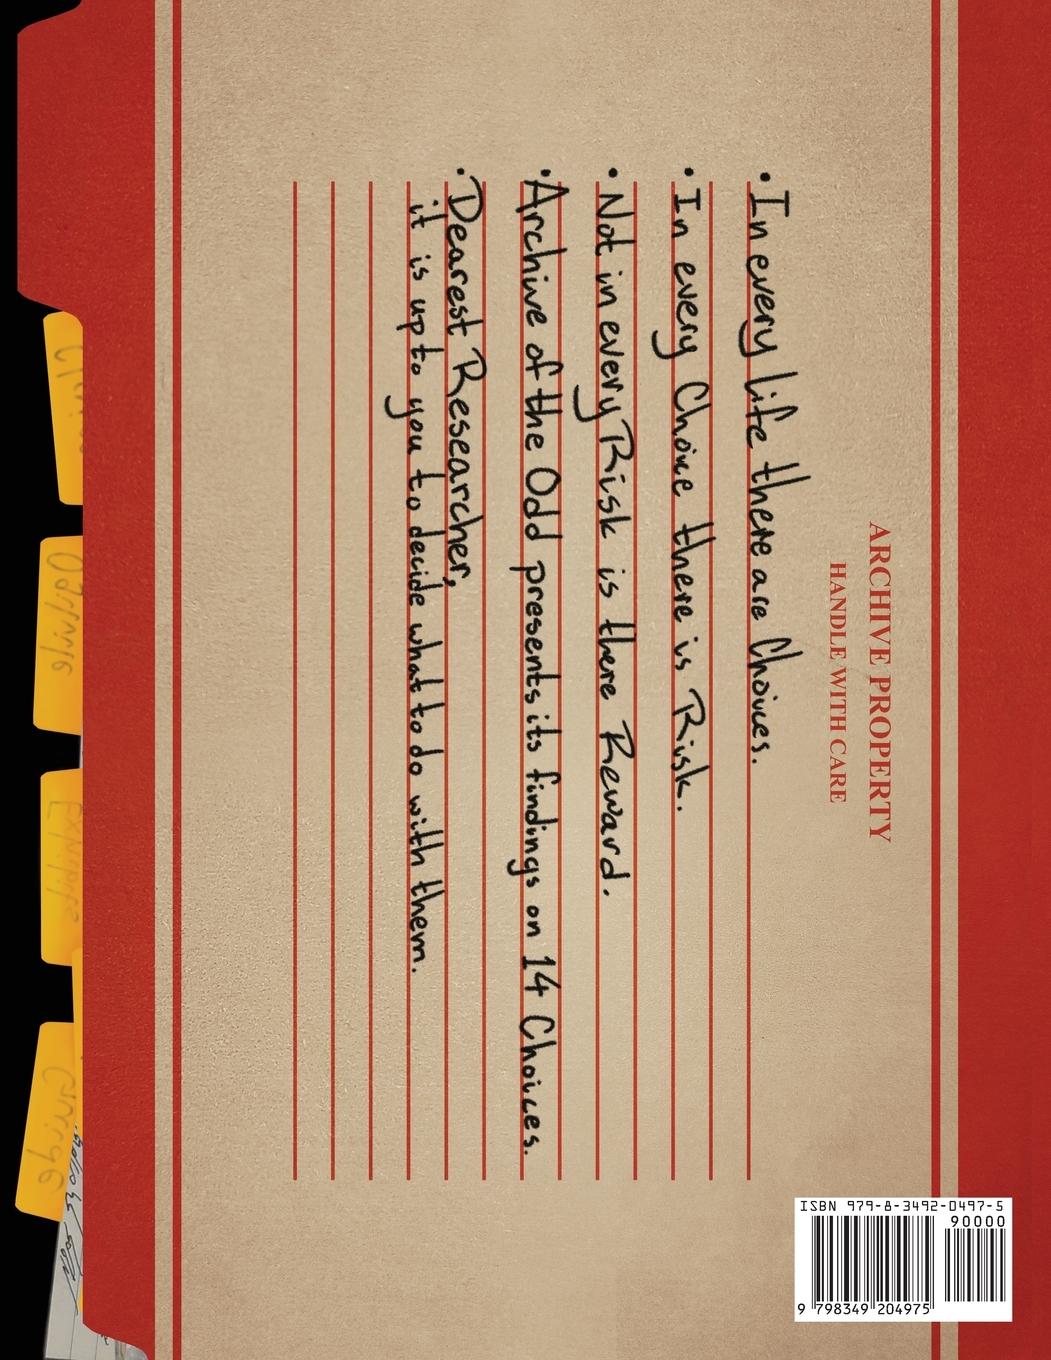 ARCHIVE PROPERTY
HANDLE WITH CARE
• In every life there are Choices.
• In every Choice there is Risk.
• Not in every Risk is there Reward.
• Archive of the Odd presents its findings on 14 Choices.
• Dearest Researcher,
it is up to you to decide what to do with them.
ISBN 979-8-3492-0497-5
90000
9 798349 204975